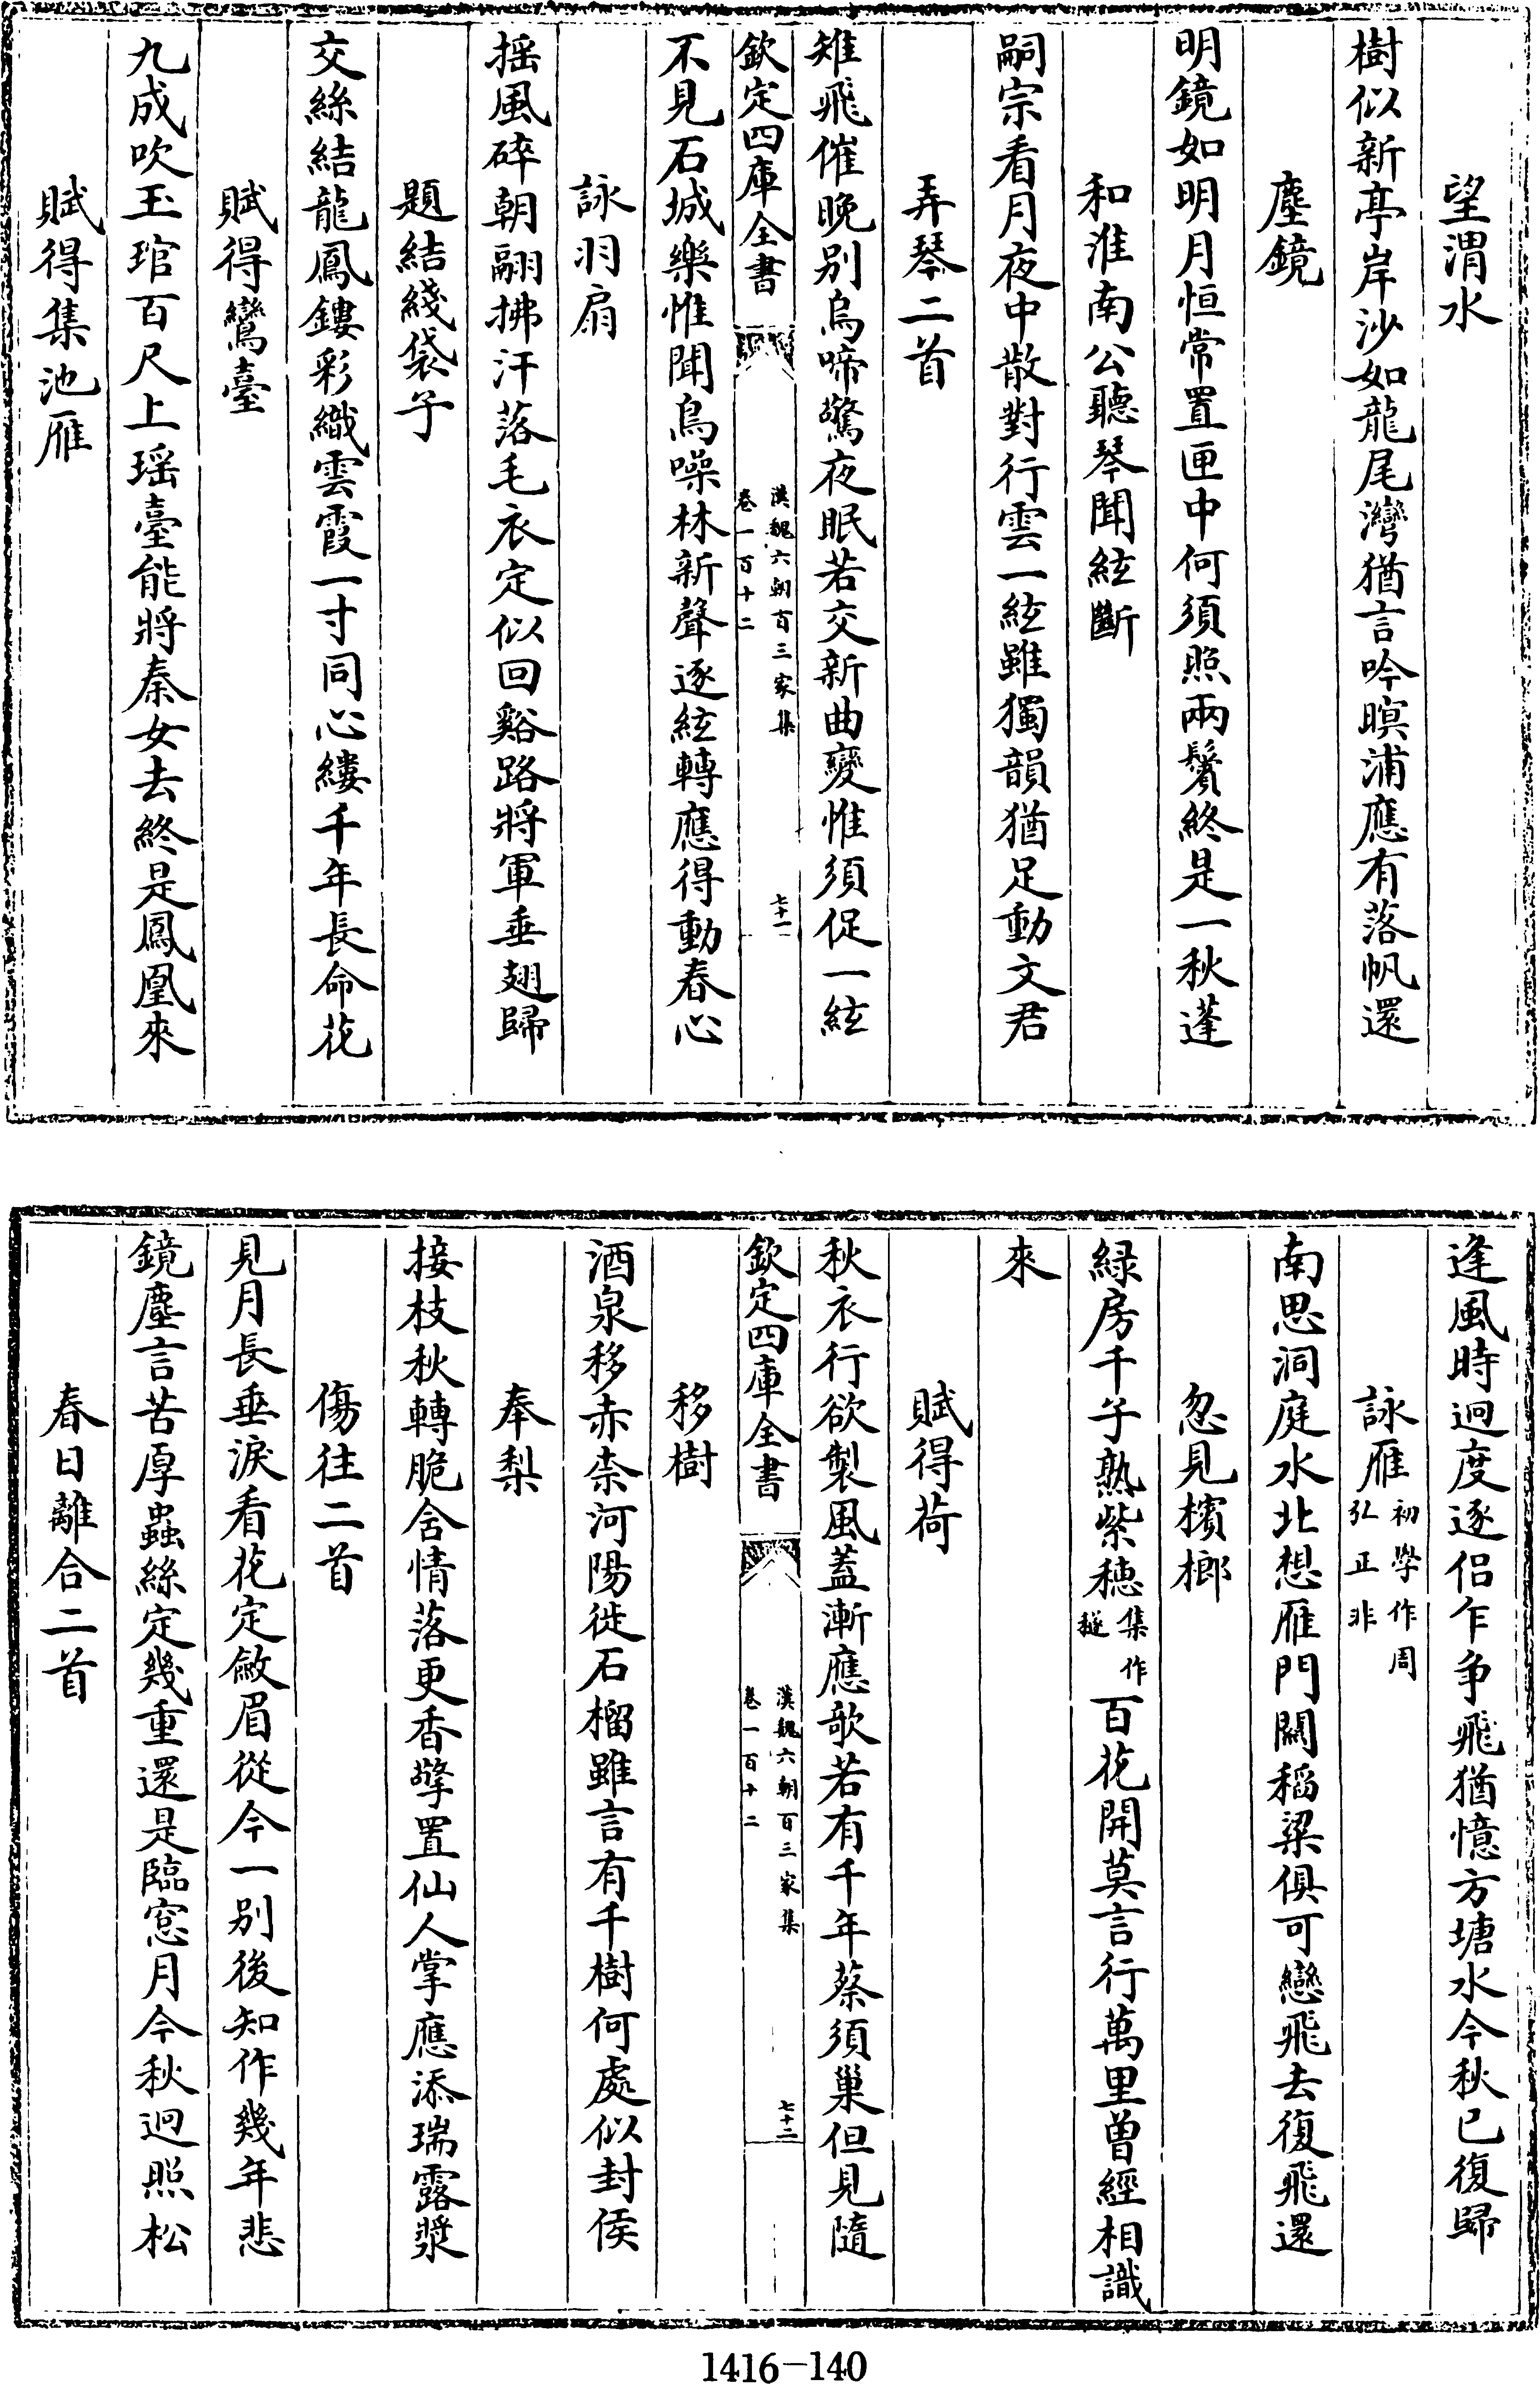 望渭水
樹似新亭岸沙如龍尾灣猶言吟暝浦應有落帆還
塵鏡
明鏡如明月恒常置匣中何須照兩鬢終是一秋蓬
和淮南公聽琴聞絃斷
嗣宗看月夜中散對行雲一絃雖獨韻猶足動文君
弄琴二首
雉飛催晚别烏啼驚夜眠若交新曲變惟須促一絃
欽定四庫全書
漢魏六朝百三家集
卷一百十二
七十一
不見石城樂惟聞烏噪林新聲逐絃轉應得動春心
詠羽扇
揺風碎朝翮拂汗落毛衣定似回谿路將軍垂翅歸
題結綫袋子
交絲結龍鳳鏤彩織雲霞一寸同心縷千年長命花
賦得鸞臺
九成吹玉琯百尺上瑶臺能將秦女去終是鳳凰來
賦得集池雁
逢風時迥度逐侣乍争飛猶憶方塘水今秋已復歸
詠雁初學作周弘正非
南思洞庭水北想雁門關稻粱俱可戀飛去復飛還
忽見檳榔
緑房千子熟紫穗集作䆃百花開莫言行萬里曾經相識
來
賦得荷
秋衣行欲製風蓋漸應歌若有千年蔡須巢但見隨
欽定四庫全書
漢魏六朝百三家集
卷一百十二
七十二
移樹
酒泉移赤柰河陽徙石榴雖言有千樹何處似封侯
奉梨
接枝秋轉脆含情落更香擎置仙人掌應添瑞露漿
傷往二首
見月長垂淚看花定斂眉從今一别後知作幾年悲
鏡塵言苦厚蟲絲定幾重還是臨窓月今秋迥照松
春日離合二首
1416-140